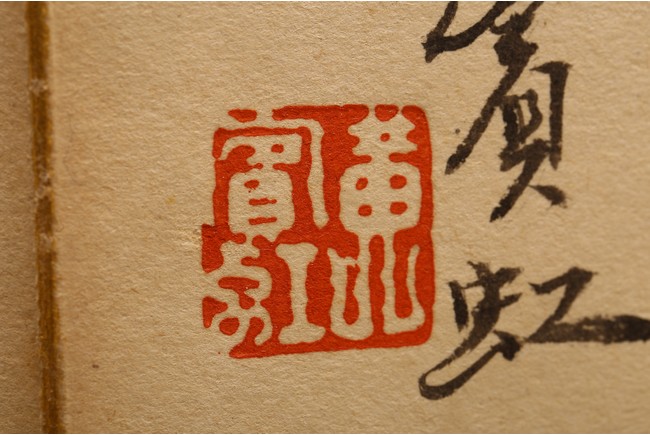 賓虹
黃山
賓虹